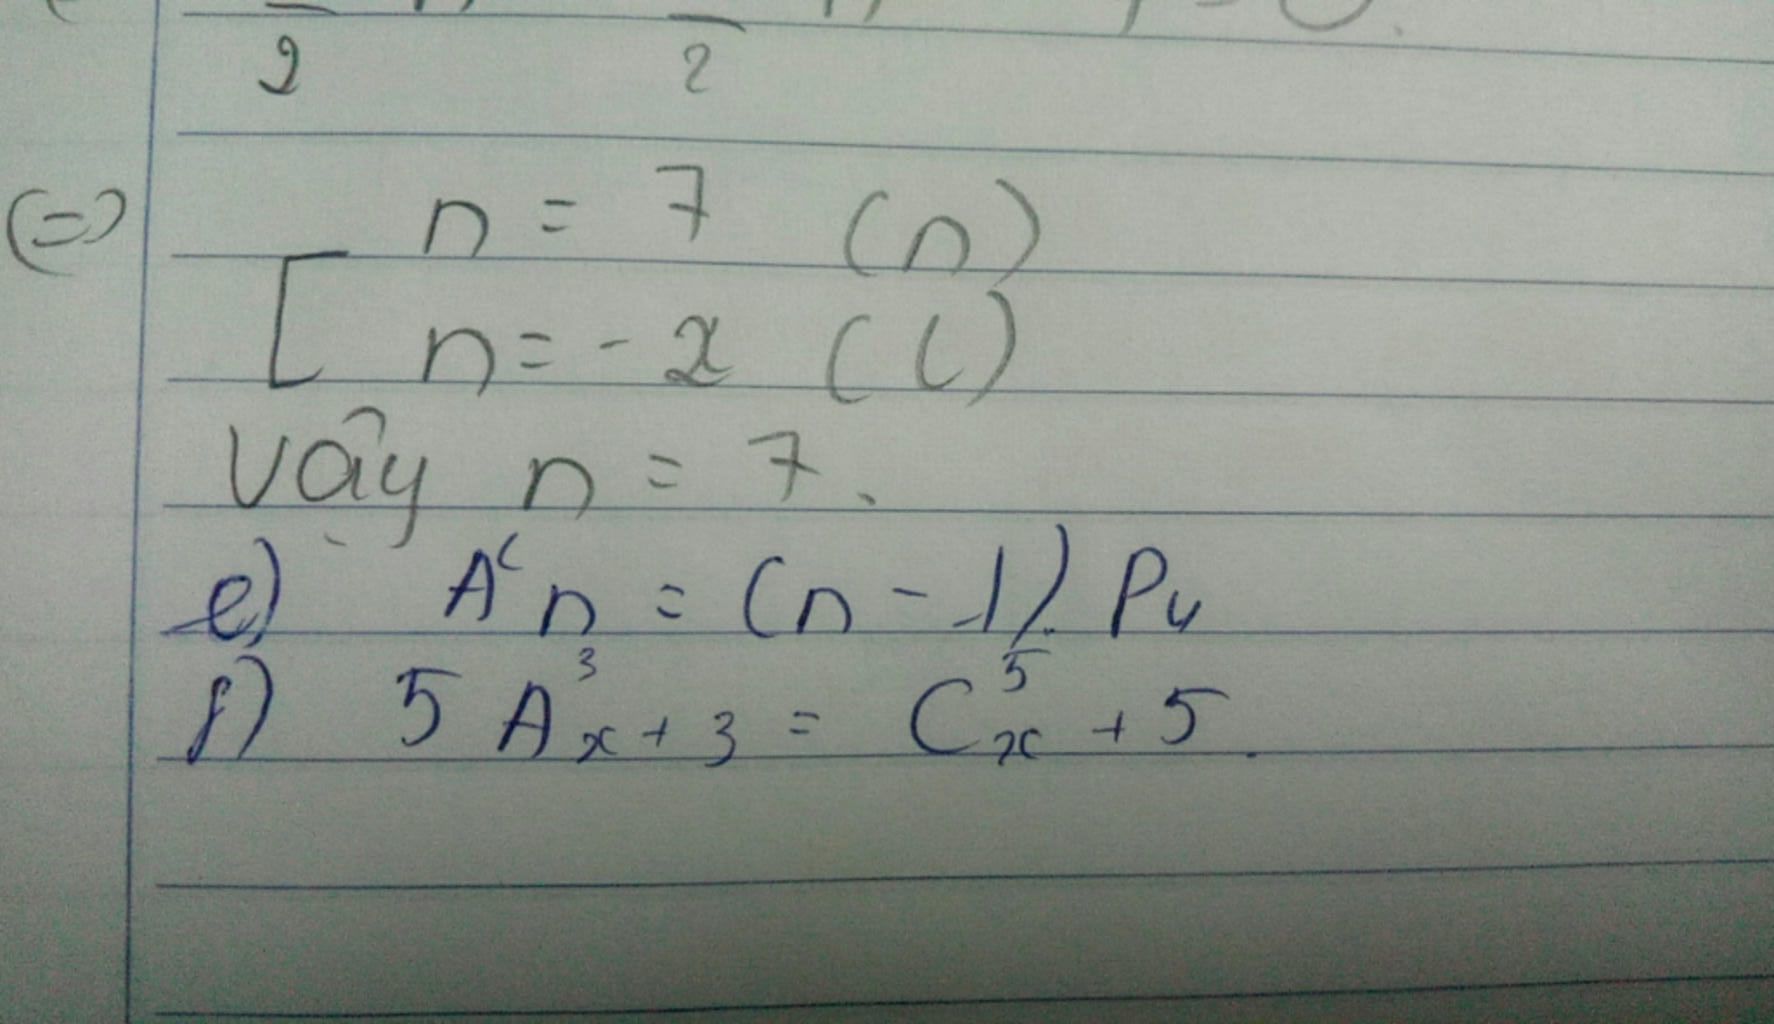 2 2
(=> n = 7 (n)
[ n = - 2 (l)
vậy n = 7.
e) A n = (n - 1). P4
f) 5 A³x + 3 = C⁵x + 5.